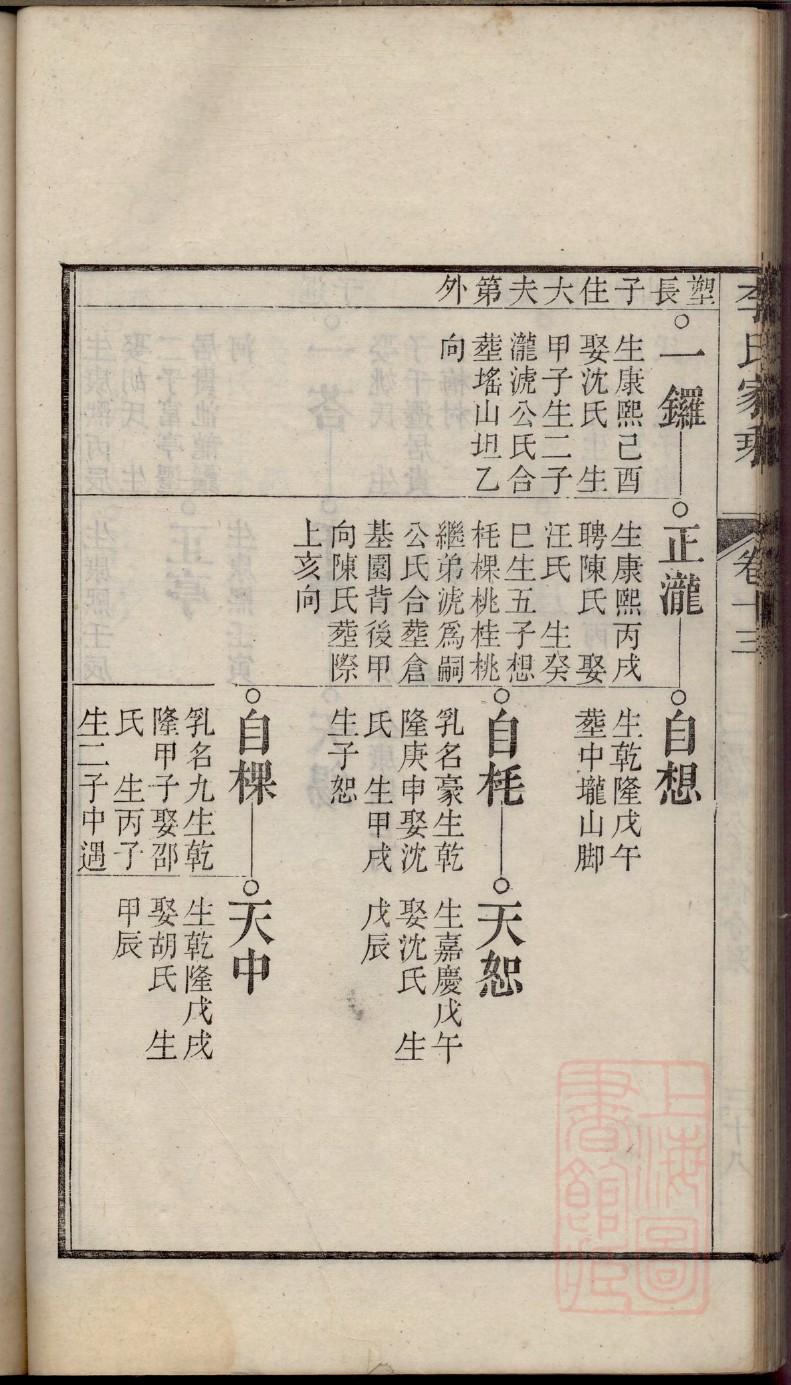 李氏家乘
卷十三
塑長子住大夫第外
一鑼
生康熙己酉
娶沈氏 生
甲子生二子
瀧淲公氏合
塟瑤山坦乙
向
正瀧
生康熙丙戌
聘陳氏 娶
汪氏 生癸
巳生五子想
枆棵桃桂桃
繼弟淲爲嗣
公氏合塟倉
基園背後甲
向陳氏塟際
上亥向
自想
生乾隆戊午
塟中壠山脚
自枆
乳名豪生乾
隆庚申娶沈
氏 生甲戌
生子恕
天恕
生嘉慶戊午
娶沈氏 生
戊辰
自棵
乳名九生乾
隆甲子娶邵
氏 生丙子
生二子中遇
天中
生乾隆戊戌
娶胡氏 生
甲辰
上海圖
書館藏